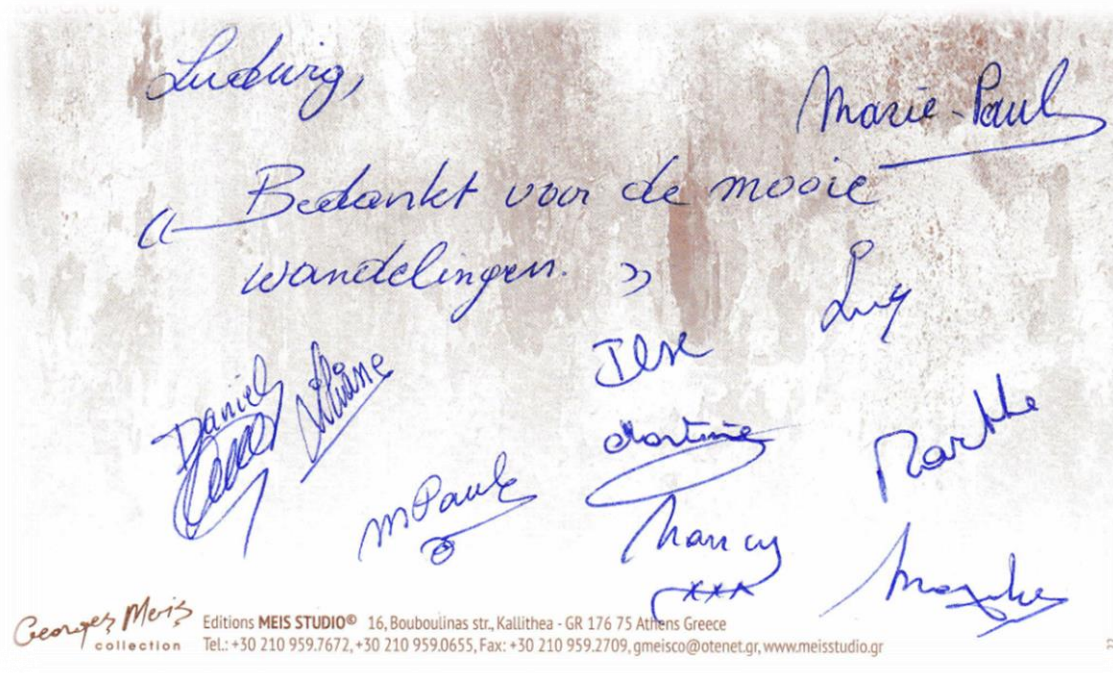 Ludwig,
Marie-Paul
« Bedankt voor de mooie
wandelingen. »
Luy
Ilse
Daniel
Liliane
Martine
Marthe
M Paule
Nancy
xxx
Georges Meis
collection
Editions MEIS STUDIO® 16, Bouboulinas str., Kallithea - GR 176 75 Athens Greece
Tel.: +30 210 959.7672, +30 210 959.0655, Fax: +30 210 959.2709, gmeisco@otenet.gr, www.meisstudio.gr